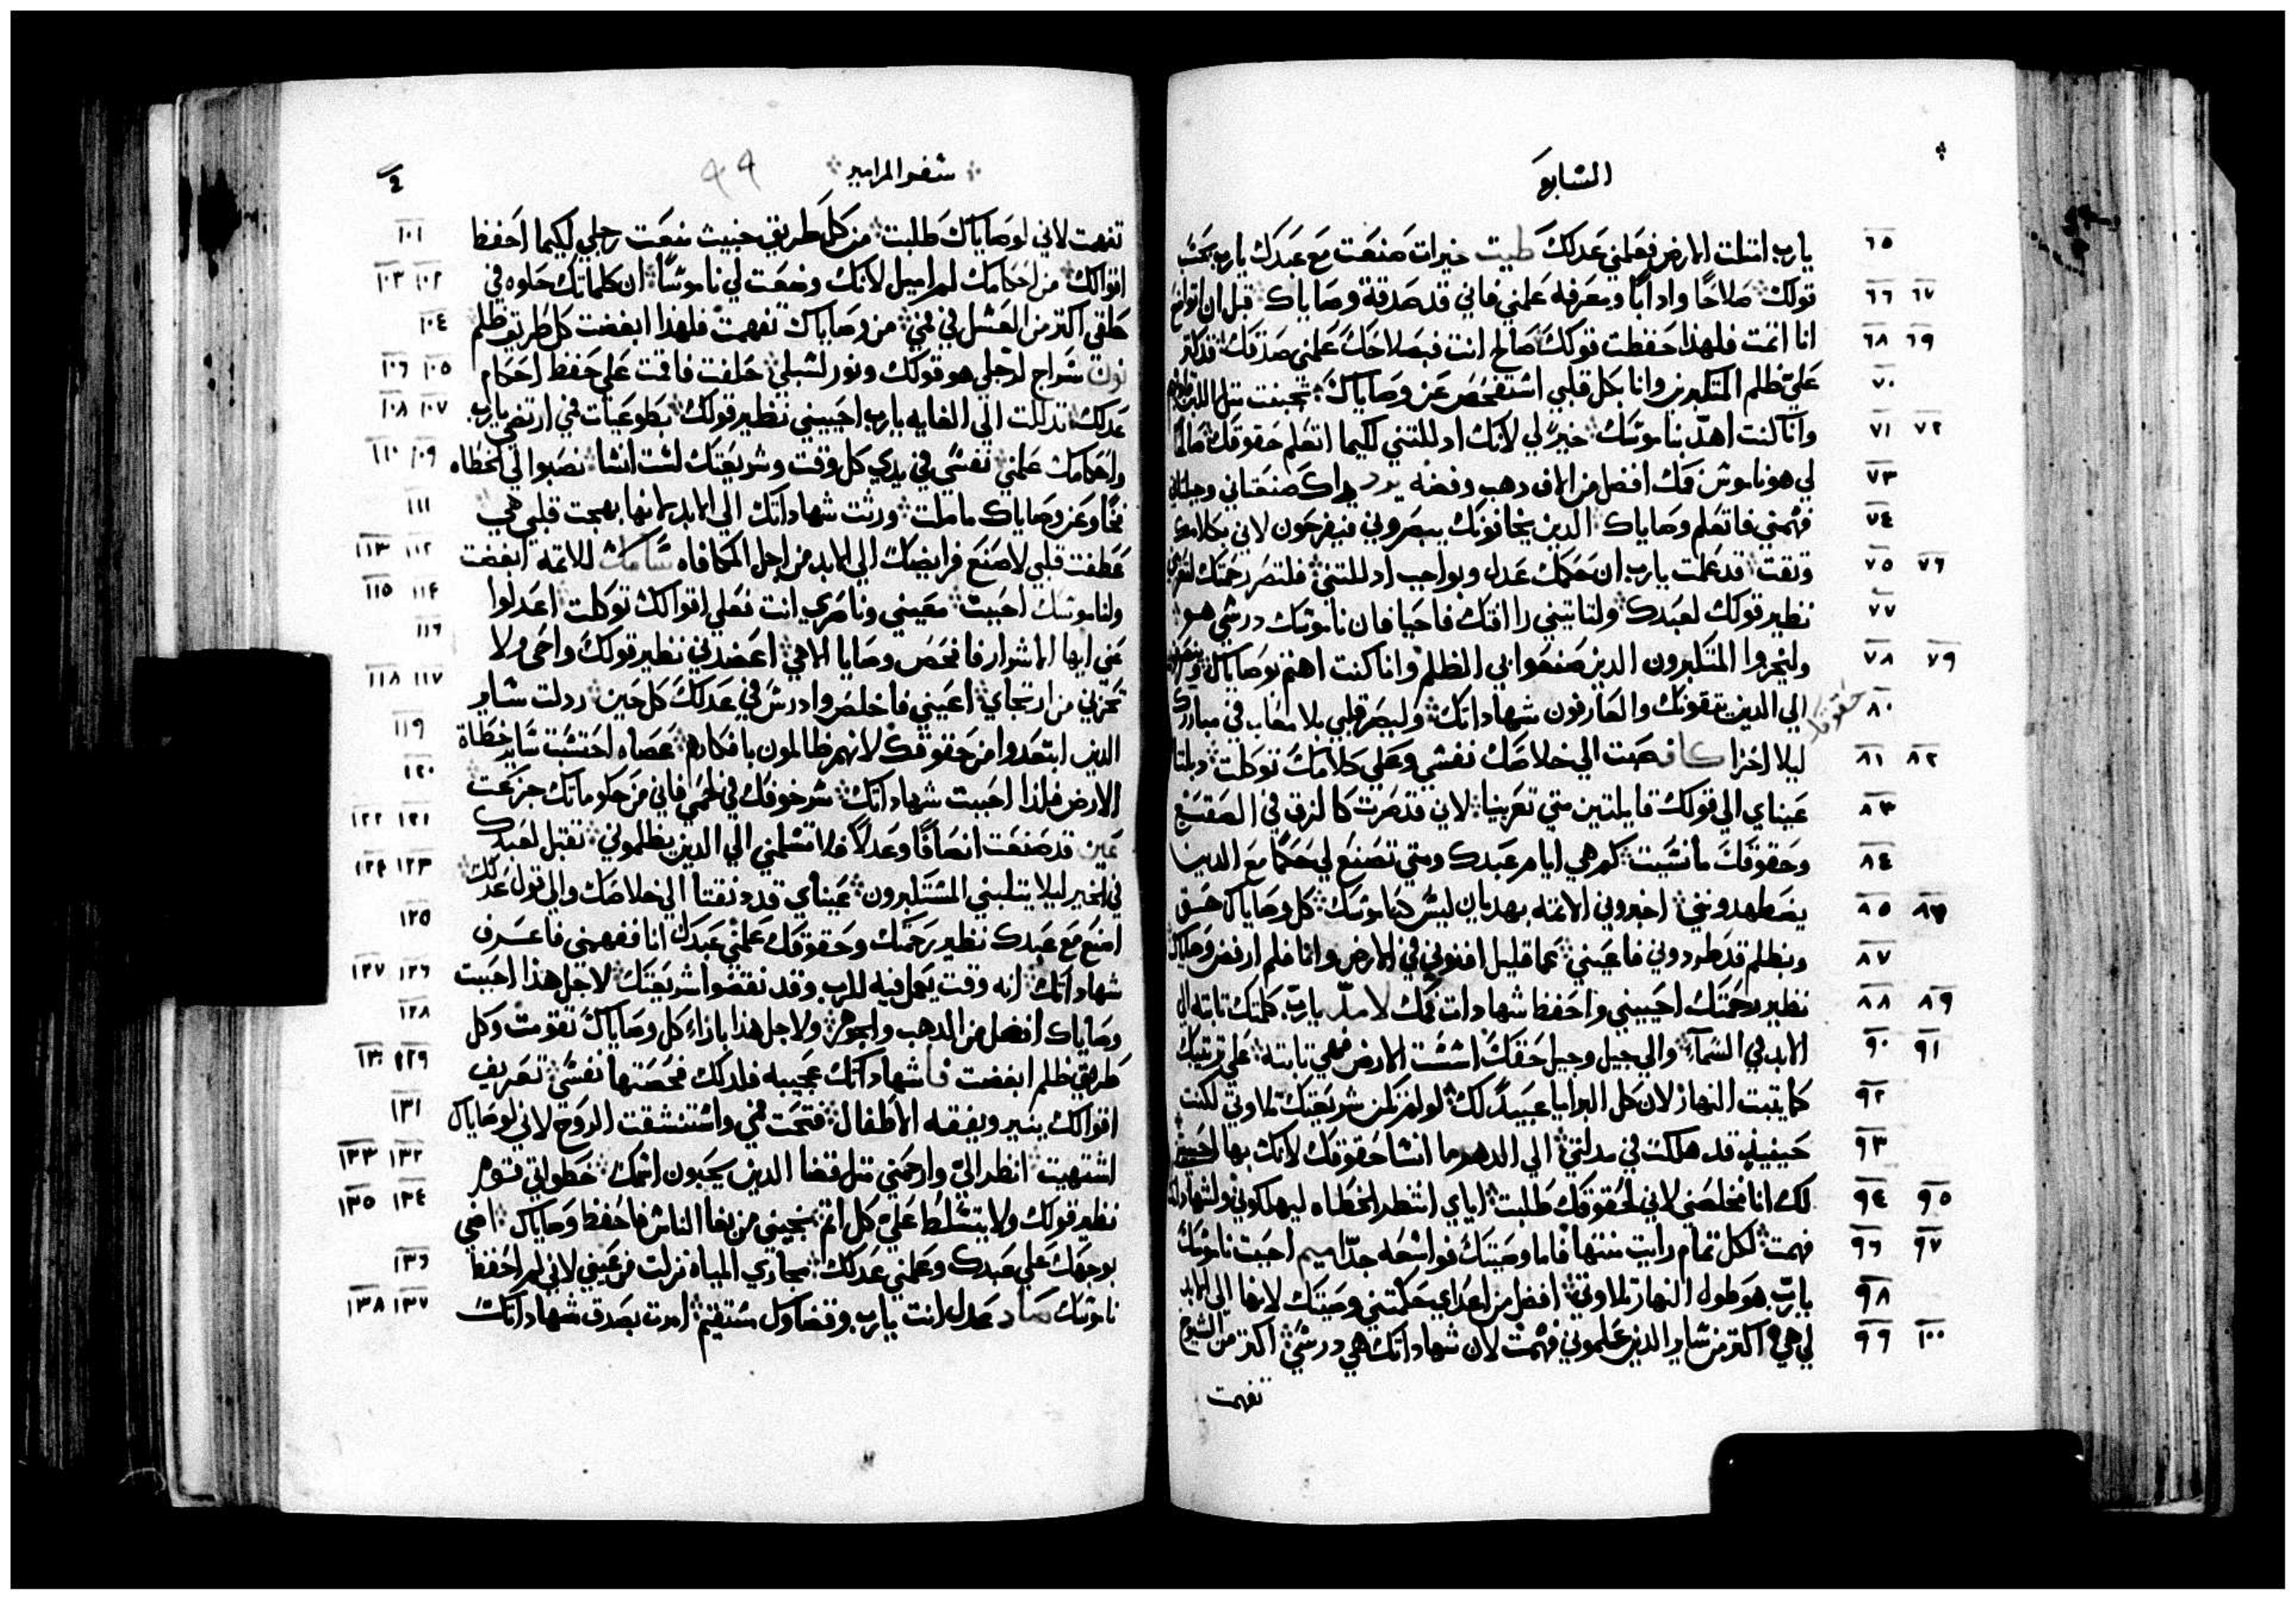 السابع
٦٥ يارب امتلت الارض فعلمني عدلك طيت خيرات صنعت مع عبدك يارب بحسب
٦٦ ٦٧ قولك صلاحًا وادابًا ومعرفه علمني فاني قد صدقة وصاياك قبل ان اتواضع
٦٨ ٦٩ انا اتمت فلهذا حفظت قولك صالح انت فبصلاحك علمني صدقك قد كتر
٧٠ علي ظلم المتكبرين وانا بكل قلبي استفحص عن وصاياك تجبنت متل اللبن
٧١ ٧٢ وانا كنت اهدّ بناموسك خيرً لي لانك ادللتني لكيما اتعلم حقوقك
٧٣ لي هو ناموس فمك افضل من الاف دهب وفضه يداك صنعتاني وجبلتاني
٧٤ فهمني فاتعلم وصاياك الدين يخافونك يبصروني فيفرحون لاني بكلامك
٧٥ ٧٦ وتقت قد علمت يارب ان حكمك عدل وبواجب ادللتني فلتصر رحمتك لتعزيني
٧٧ نظير قولك لعبدك ولتاتيني راافتك فاحيا فان ناموسك درسي هو
٧٨ ٧٩ وليخزوا المتكبرون الدين صنعوا بي الظلم وانا كنت اهتم بوصاياك
٨٠ الي الدين يتقونك والعارفون شهاداتك وليصر قلبي بلا معاب في
حقوقك
٨١ ٨٢ ليلا اخزا كاف صبت الي خلاصك نفسي وعلي كلامك توكلت دبلتا
٨٣ عيناي الي قولك قايلتين متي تعزينا لاني قد صرت كالزق في الصقيع
٨٤ وحقوقك ما نسيت كم هي ايام عبدك ومتي تصنع لي حكمًا مع الدين
٨٥ ٨٦ يضطهدونني اخبروني الاتمه بهديان ليس كناموسك كل وصاياك حق
٨٧ وبظلم قد طردوني فاعيني عما قليل افنوني في الارض وانا فلم ارفض وصاياك
٨٨ ٨٩ نظير رحمتك احييني واحفظ شهادات فمك لامد يارب كلمتك تابته الي
٩٠ ٩١ الابد في السمآء والي جيل وجيل حقك اسست الارض فهي تابته علي ترتيبك
٩٢ كما يتبت النهار لان كل البرايا عبيدً لك لو لم تكن شريعتك تلاوتي لكنت
٩٣ حينيذٍ قد هلكت في مدلتي الي الدهر ما انسا حقوقك لانك بها احييتني
٩٤ ٩٥ لك انا فخلصني لاني لحقوقك طلبت اياي انتظر الخطاه ليهلكوني ولشهاداتك
٩٦ ٩٧ فهمت لكل تمام رايت منتها فاما وصيتك فواسعه جدًا ميم احببت ناموسك
٩٨ يارب هو طول النهار تلاوتي افضل من اعداي حكمتني وصيتك لانها الي الابد
٩٩ ١٠٠ لي هي اكتر من ساير الدين علموني فهمت لان شهاداتك هي درسي اكتر من الشيوخ
تفهمت
سفر المزامير ٩٩
١٠١ تفهمت لاني لوصاياك طلبت من كل طريق خبيث منعت رجلي لكيما احفظ
١٠٢ ١٠٣ اقوالك من احكامك لم اميل لانك وضعت لي ناموسًا ان كلماتك حلوه في
١٠٤ حلقي اكتر من العسل في فمي من وصاياك تفهمت فلهذا ابغضت كل طريق ظلم
١٠٥ ١٠٦ نون سراج لرجلي هو قولك ونور لسبلي حلفت فاقمت علي حفظ احكام
١٠٧ ١٠٨ عدلك تدللت الي الغايه يارب احييني نظير قولك بطوعيات فمي ارتضي يارب
١٠٩ ١١٠ واحكامك علمني نفسي في يدي كل وقت وشريعتك لست انسا نصبوا لي الخطاه
١١١ فخًا وعن وصاياك ما ملت ورثت شهاداتك الي الابد لانها بهجت قلبي هي
١١٢ ١١٣ عطفت قلبي لاصنع فرايضك الي الابد من اجل المكافاه سامك للاتمه ابغضت
١١٤ ١١٥ ولناموسك احببت معيني وناصري انت فعلي اقوالك توكلت اعدلوا
١١٦ عني ايها الاشرار فافحص وصايا الاهي اعضدني نظير قولك واحي ولا
١١٧ ١١٨ تخزني من ارتجاي اعيني فاخلص وادرس في عدلك كل حين ردلت ساير
١١٩ الدين ابتعدوا من حقوقك لانهم ظالمون بافكارهم عصاه احتسبت ساير خطاة
١٢٠ الارض فلذا احببت شهاداتك سمر خوفك في لحمي فاني من حكوماتك جزعت
١٢١ ١٢٢ عين قد صنعت انصافًا وعدلاً فلا تسلمني الي الدين يظلموني تقبل لعبدك
١٢٣ ١٢٤ في الخير ليلا يتلبني المستكبرون عيناي قد ونقتا الي خلاصك والي قول عدلك
١٢٥ اصنع مع عبدك نظير رحمتك وحقوقك علمني عبدك انا ففهمني فاعرف
١٢٦ ١٢٧ شهاداتك انه وقت يعمل فيه للرب وقد نقضوا شريعتك لاجل هذا احببت
١٢٨ وصاياك افضل من الدهب والجوهر ولاجل هذا بازاء كل وصاياك تقومت وكل
١٢٩ ١٣٠ طريق ظلم ابغضت فا شهاداتك عجيبه فلدلك فحصتها نفسي تعريف
١٣١ اقوالك ينير ويفقه الاطفال فتحت فمي واستنشقت الروح لاني لوصاياك
١٣٢ ١٣٣ اشتهيت انظر اليّ وارحمني متل قضا الدين يحبون اسمك خطواتي قوم
١٣٤ ١٣٥ نظير قولك ولا يتسلط علي كل اتم نجيني من بغا الناس فاحفظ وصاياك اضي
١٣٦ بوجهك علي عبدك وعلمني عدلك مجاري المياه نزلت من عيني لاني لم احفظ
١٣٧ ١٣٨ ناموسك صاد عدل انت يارب وقضاوك مستقيم امرت بصدق شهاداتك